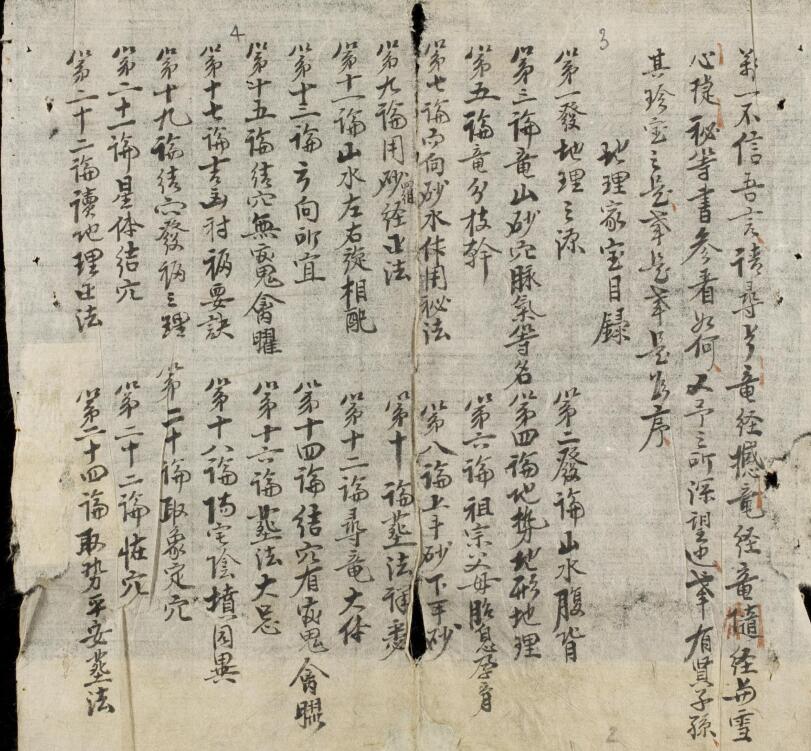 若不信吾言請尋考竜経撼竜経竜髓経与雪
心捷秘等書参看如何又予之所深望也幸有賢子孫
其珍宝之是幸是幸是为序
地理家宝目録
第一發地理之源
第二發論山水腹背
第三論竜山砂穴脉氣等名
第四論地勢地形地理
第五論竜分枝幹
第六論祖宗父母胎息孕育
第七論內向砂水体用秘法
第八論上手砂下手砂
第九論用砂羅経正法
第十論葬法禅
第十一論山水左右旋相配
第十二論尋竜大体
第十三論方向所宜
第十四論結穴有官鬼禽曜
第十五論結穴無官鬼禽曜
第十六論葬法大忌
第十七論吉凶禍福要訣
第十八論陽宅陰墳同異
第十九論結穴發福之理
第二十論取象定穴
第二十一論星体結穴
第二十二論怪穴
第二十二論讀地理正法
第二十四論取势平安葬法
3
4
2